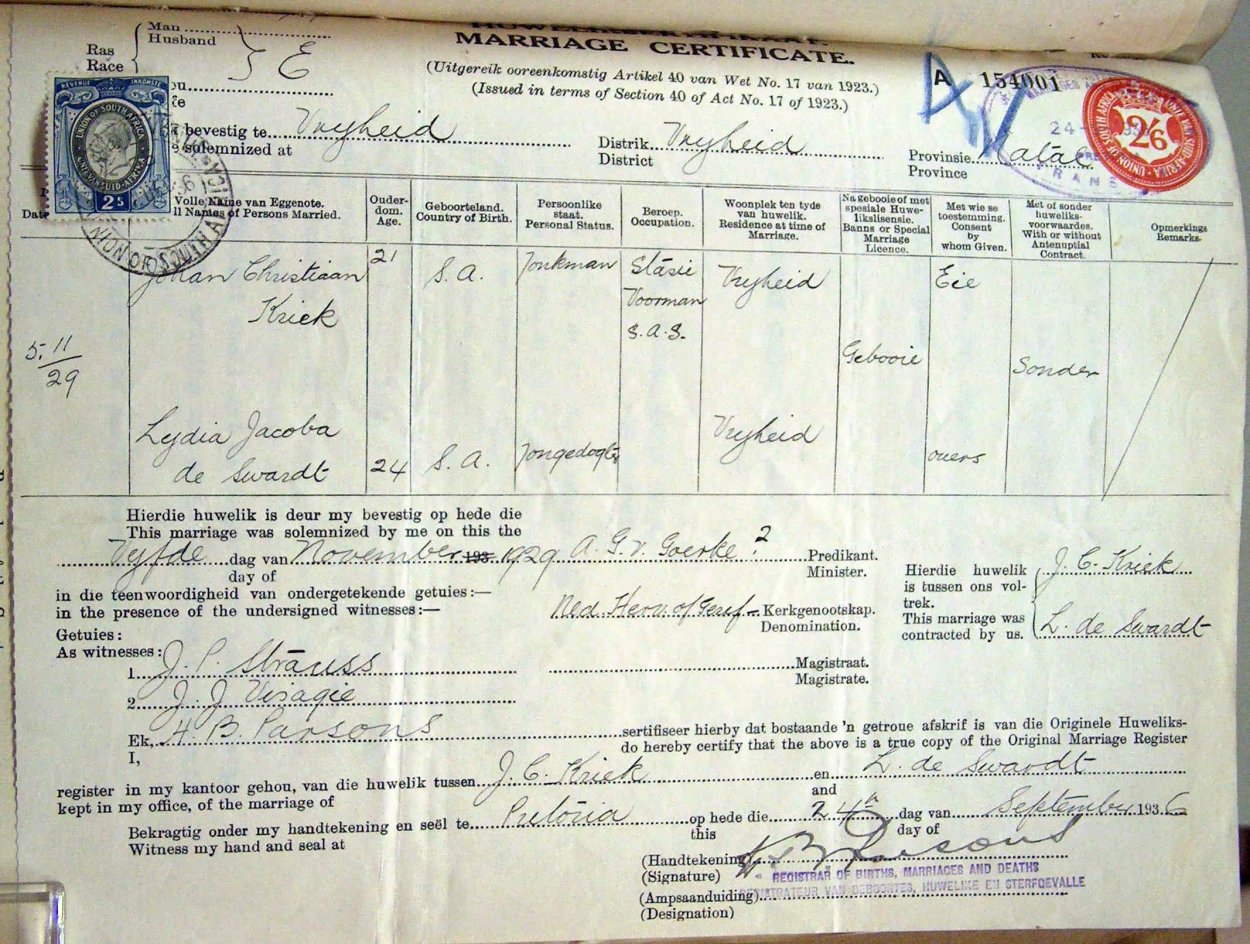 MARRIAGE CERTIFICATE.
(Uitgereik ooreenkomstig Artikel 40 van Wet No. 17 van 1923.)
(Issued in terms of Section 40 of Act No. 17 of 1923.)
Ras
Race
Man
Husband
E
A 154001
bevestig te Vryheid
solemnized at
Distrik Vryheid
District
Provinsie Natal
Province
REVENUE INKOMSTE
UNION OF SOUTH AFRICA
UNIE VAN SUID-AFRIKA
2s
UNION OF SOUTH AFRICA
24
TRANS
2/6
UNION OF SOUTH AFRICA · UNIE VAN SUID-AFRIKA
Volle Name van Eggenote.
Names of Persons Married.
Ouder-
dom.
Age.
Geboorteland.
Country of Birth.
Persoonlike
staat.
Personal Status.
Beroep.
Occupation.
Woonplek ten tyde
van huwelik.
Residence at time of
Marriage.
Na gebooie of met
spesiale Huwe-
likslisensie.
Banns or Special
Marriage
Licence.
Met wie se
toestemming.
Consent
by
whom Given.
Met of sonder
huweliks-
voorwaardes.
With or without
Antenuptial
Contract.
Opmerkings
Remarks.
Johan Christiaan
Kriek
21
S.A.
Jonkman
Stasie
Voorman
S.A.S.
Vryheid
Eie
5.11
29
Gebooie
Sonder
Lydia Jacoba
de Swardt
24
S.A.
Jongedogtr
Vryheid
ouers
Hierdie huwelik is deur my bevestig op hede die
This marriage was solemnized by me on this the
Vyfde dag van November 193 1929 A. G. v. Goerke ? Predikant.
day of Minister.
in die teenwoordigheid van ondergetekende getuies:—
in the presence of the undersigned witnesses:—
Ned. Herv. of Geref— Kerkgenootskap.
Denomination.
Hierdie huwelik
is tussen ons vol-
trek.
This marriage was
contracted by us.
J. C. Kriek
L. de Swardt
Getuies:
As witnesses:
1. J. P. Strauss
2 J. J. Visagie
Magistraat.
Magistrate.
Ek, H. B. Parsons sertifiseer hierby dat bostaande 'n getroue afskrif is van die Originele Huweliks-
I, do hereby certify that the above is a true copy of the Original Marriage Register
register in my kantoor gehou, van die huwelik tussen J. C. Kriek en L. de Swardt
kept in my office, of the marriage of and
Bekragtig onder my handtekening en seël te Pretoria op hede die 24th dag van September 1936
Witness my hand and seal at this day of
(Handtekening) H. B. Parsons
(Signature)
REGISTRAR OF BIRTHS, MARRIAGES AND DEATHS
REGISTRATEUR VAN GEBOORTES, HUWELIKE EN STERFGEVALLE
(Ampsaanduiding)
(Designation)